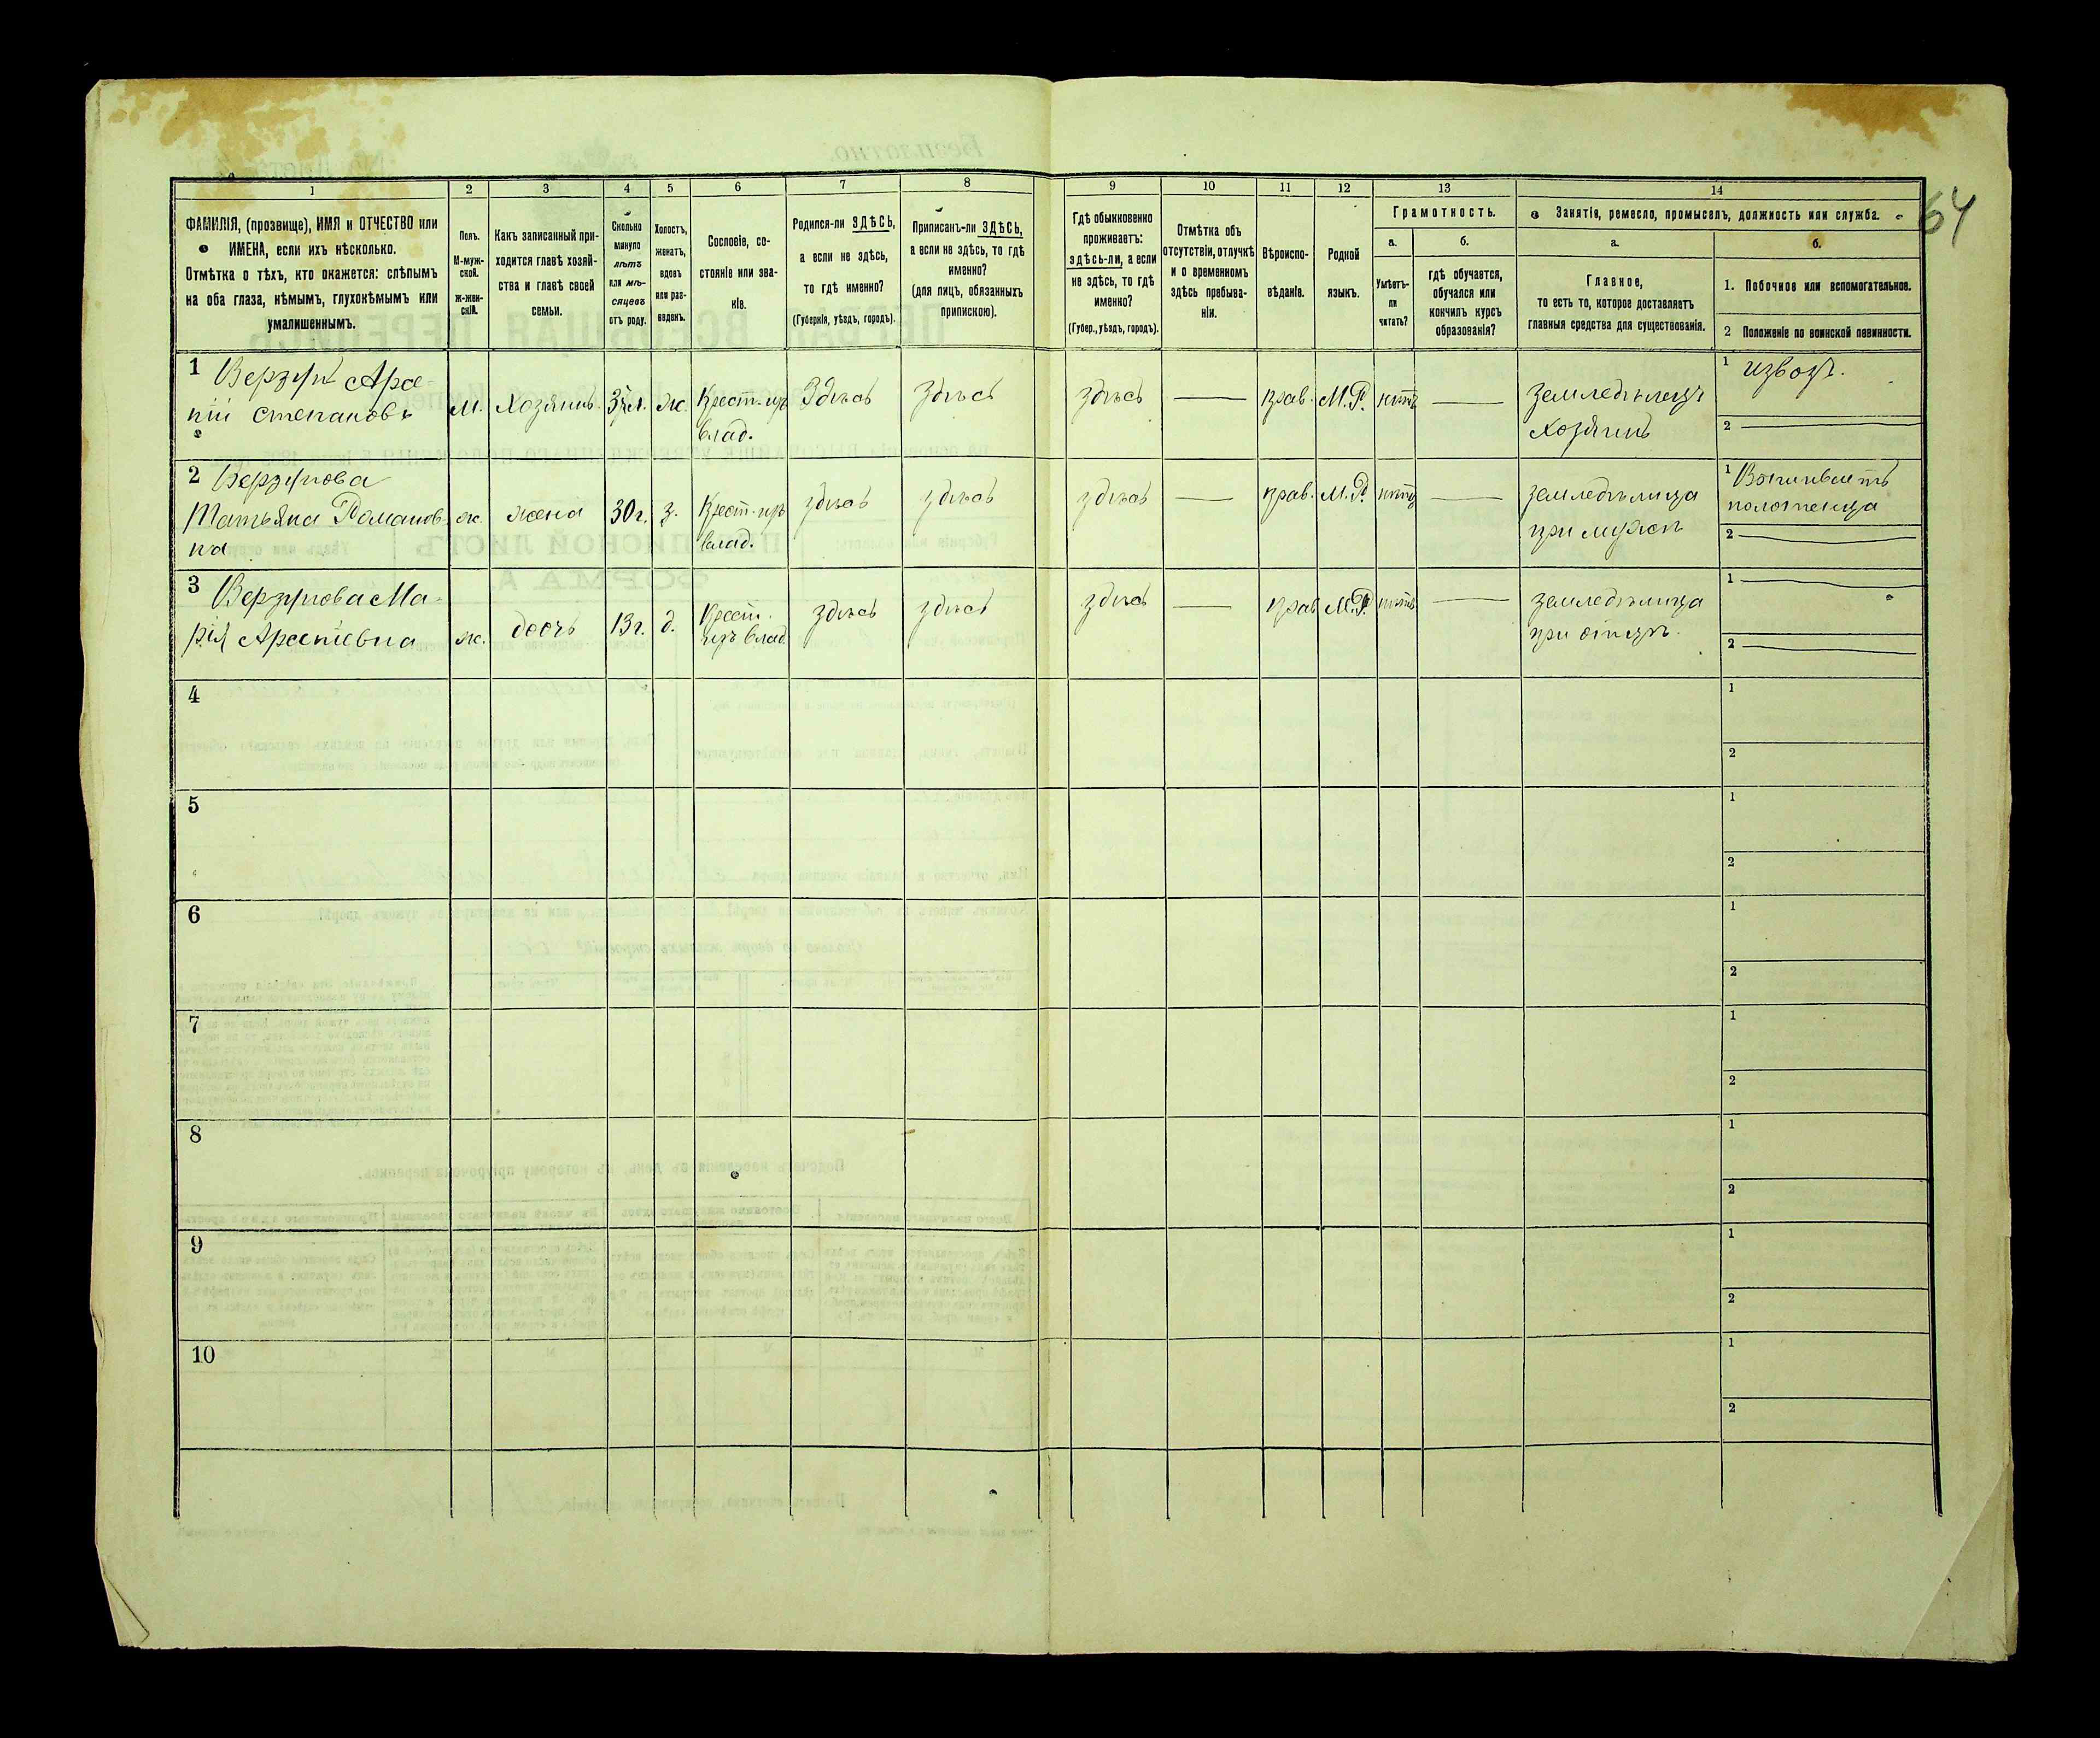 54
1 2 3 4 5 6 7 8 9 10 11 12 13 14
ФАМИЛІЯ, (прозвище), ИМЯ и ОТЧЕСТВО или
ИМЕНА, если ихъ нѣсколько.
Отмѣтка о тѣхъ, кто окажется: слѣпымъ
на оба глаза, нѣмымъ, глухонѣмымъ или
умалишеннымъ.
Полъ.
М-муж-
ской.
Ж-жен-
скій.
Какъ записанный при-
ходится главѣ хозяй-
ства и главѣ своей
семьи.
Сколько
минуло
лѣтъ
или мѣ-
сяцевъ
отъ роду.
Холостъ,
женатъ,
вдовъ
или раз-
веденъ.
Сословіе, со-
стояніе или зва-
ніе.
Родился-ли ЗДѢСЬ,
а если не здѣсь,
то гдѣ именно?
(Губернія, уѣздъ, городъ).
Приписанъ-ли ЗДѢСЬ,
а если не здѣсь, то гдѣ
именно?
(для лицъ, обязанныхъ
припискою).
Гдѣ обыкновенно
проживаетъ:
здѣсь-ли, а если
не здѣсь, то гдѣ
именно?
(Губер., уѣздъ, городъ).
Отмѣтка объ
отсутствіи, отлучкѣ
и о временномъ
здѣсь пребыва-
ніи.
Вѣроиспо-
вѣданіе.
Родной
языкъ.
Грамотность.
а.
Умѣетъ-
ли
читать?
б.
гдѣ обучается,
обучался или
кончилъ курсъ
образованія?
Занятіе, ремесло, промыселъ, должность или служба.
а.
Главное,
то есть то, которое доставляетъ
главныя средства для существованія.
б.
1. Побочное или вспомогательное.
2 Положеніе по воинской повинности.
1 Верзунъ Арсе-
ній Степановъ
М.
Хозяинъ.
ж.
Крест. изъ
влад.
Здѣсь
здѣсь
здѣсь
прав.
М.Р.
нѣтъ
земледѣлецъ
хозяинъ
1 извозъ.
2
2 Верзунова
Татьяна Романов-
на
ж.
жена
30 г.
з.
Крест. изъ
влад.
здѣсь
здѣсь
здѣсь
прав.
М.Р.
нѣтъ
земледѣлица
при мужѣ
1
полотенца
2
3 Верзунова Ма-
рія Арсеніевна
ж.
дочь
13 г.
д.
Крест.
изъ влад
здѣсь
здѣсь
здѣсь
прав
М.Р.
нѣтъ
земледѣлица
при отцѣ.
1
2
4
1
2
5
1
2
6
1
2
7
1
2
8
1
2
9
1
2
10
1
2